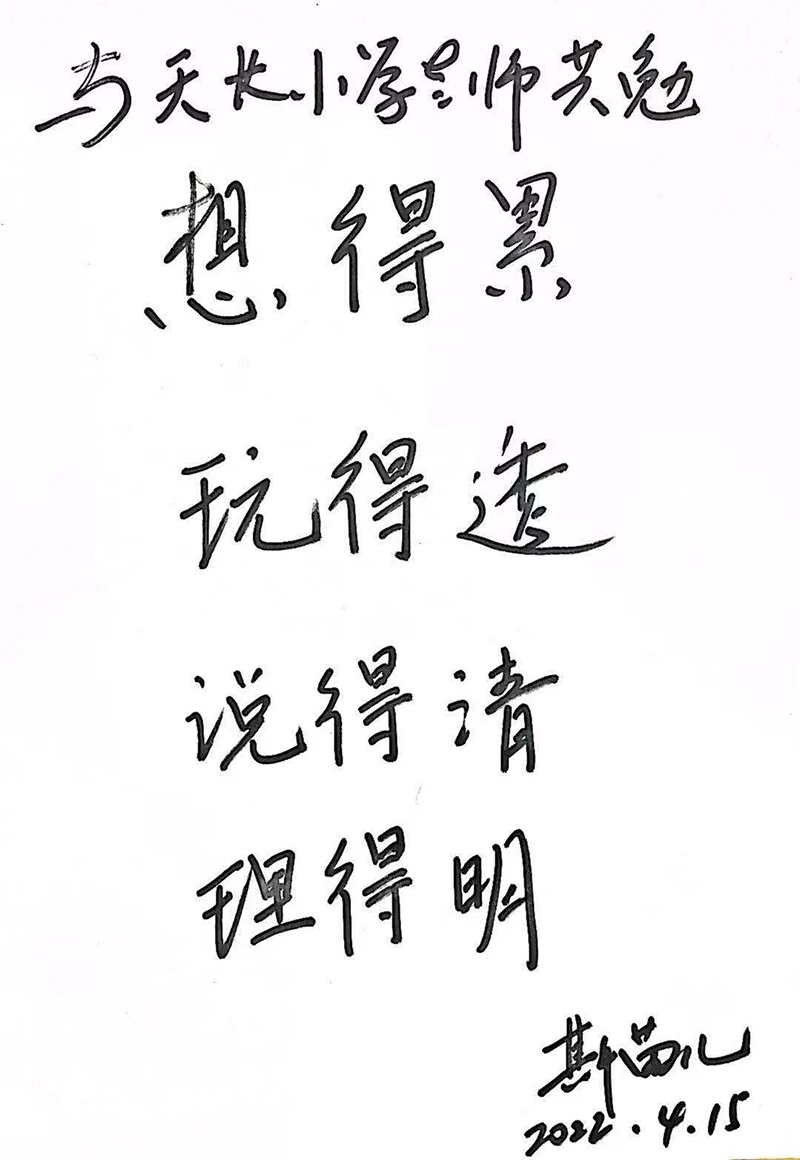 与天长小学老师共勉
想得累
玩得透
说得清
理得明
斯苗儿
2022.4.15